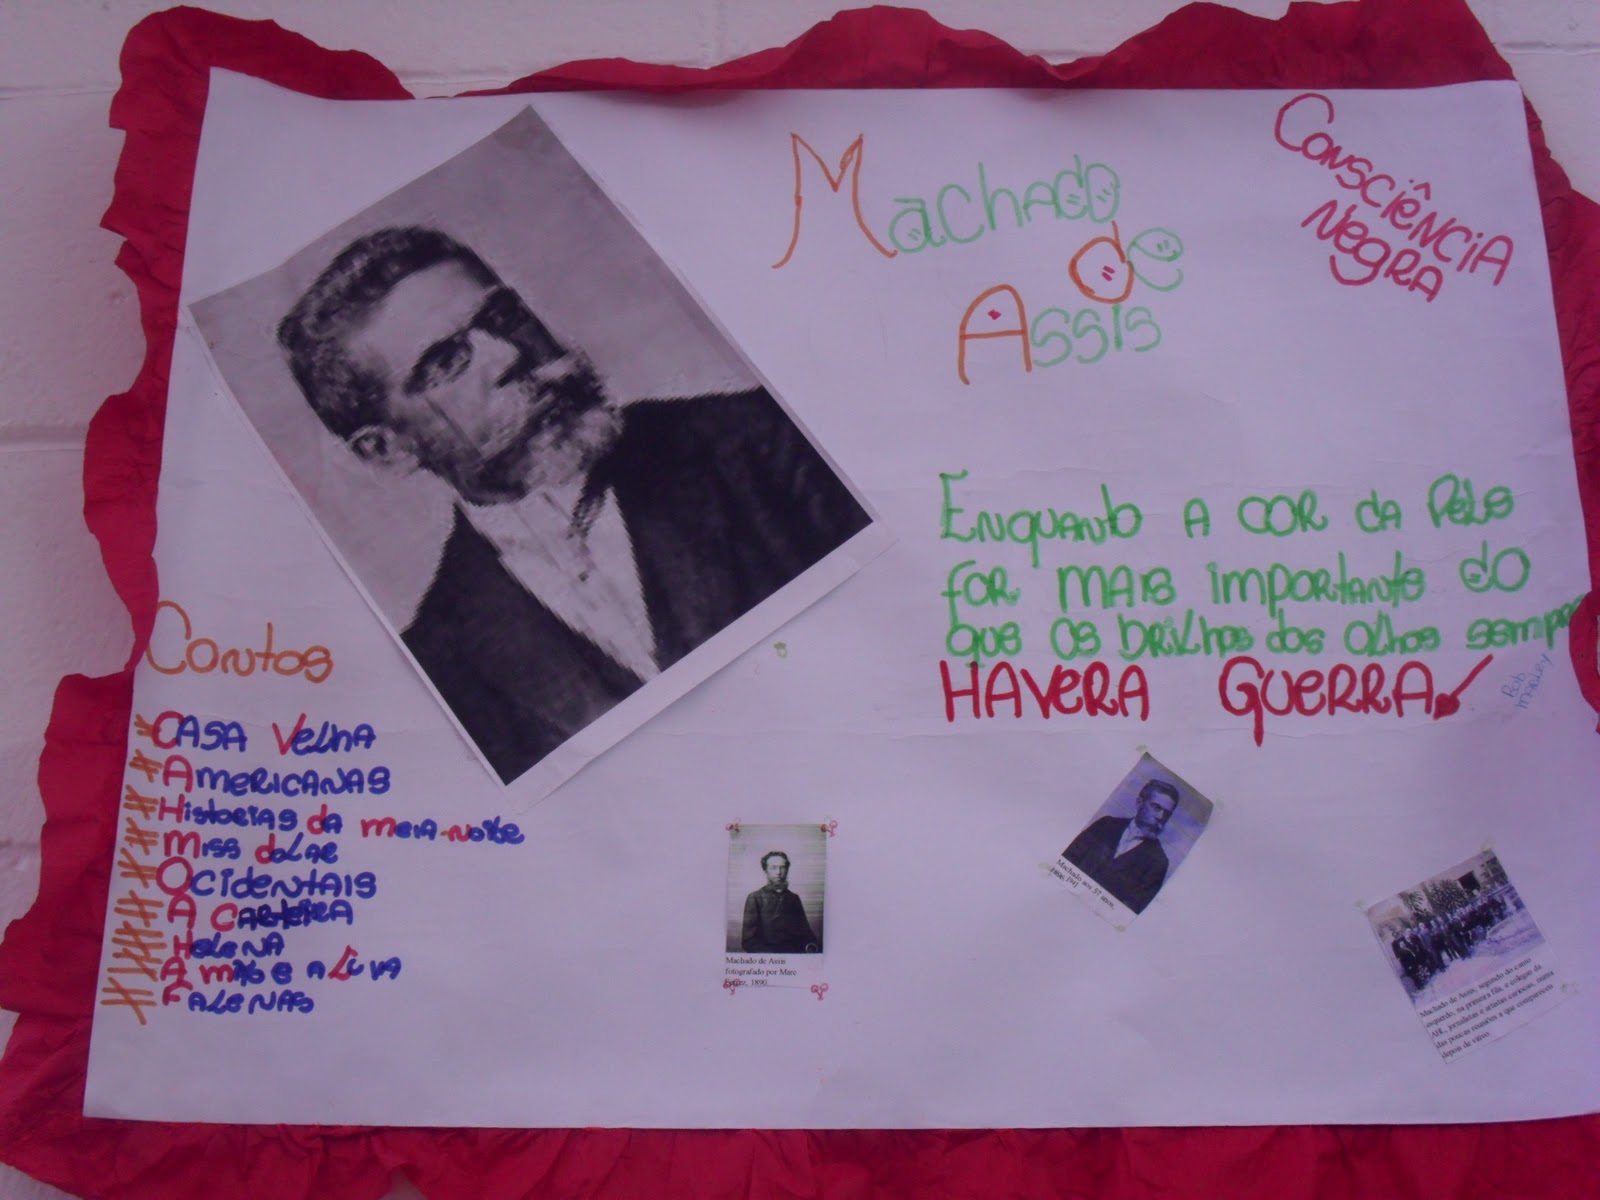 Machado
de
Assis
Consciência
Negra
Enquanto a cor da Pele
for mais importante do
que os brilhos dos olhos sempre
Havera Guerra!
Bob
Marley
Contos
# Casa Velha
# Americanas
# Historias da Meia-Noite
# Miss dolar
# Ocidentais
# A Carteira
# Helena
# A mão e a Luva
# Falenas
Machado de Assis
fotografado por Marc
Ferrez, 1890
Machado aos 57 anos,
1896.
Machado de Assis, segundo do canto
esquerdo, na primeira fila, e colegas da
ABL, jornalistas e artistas cariocas, numa
das poucas reuniões a que compareceu
depois de viúvo